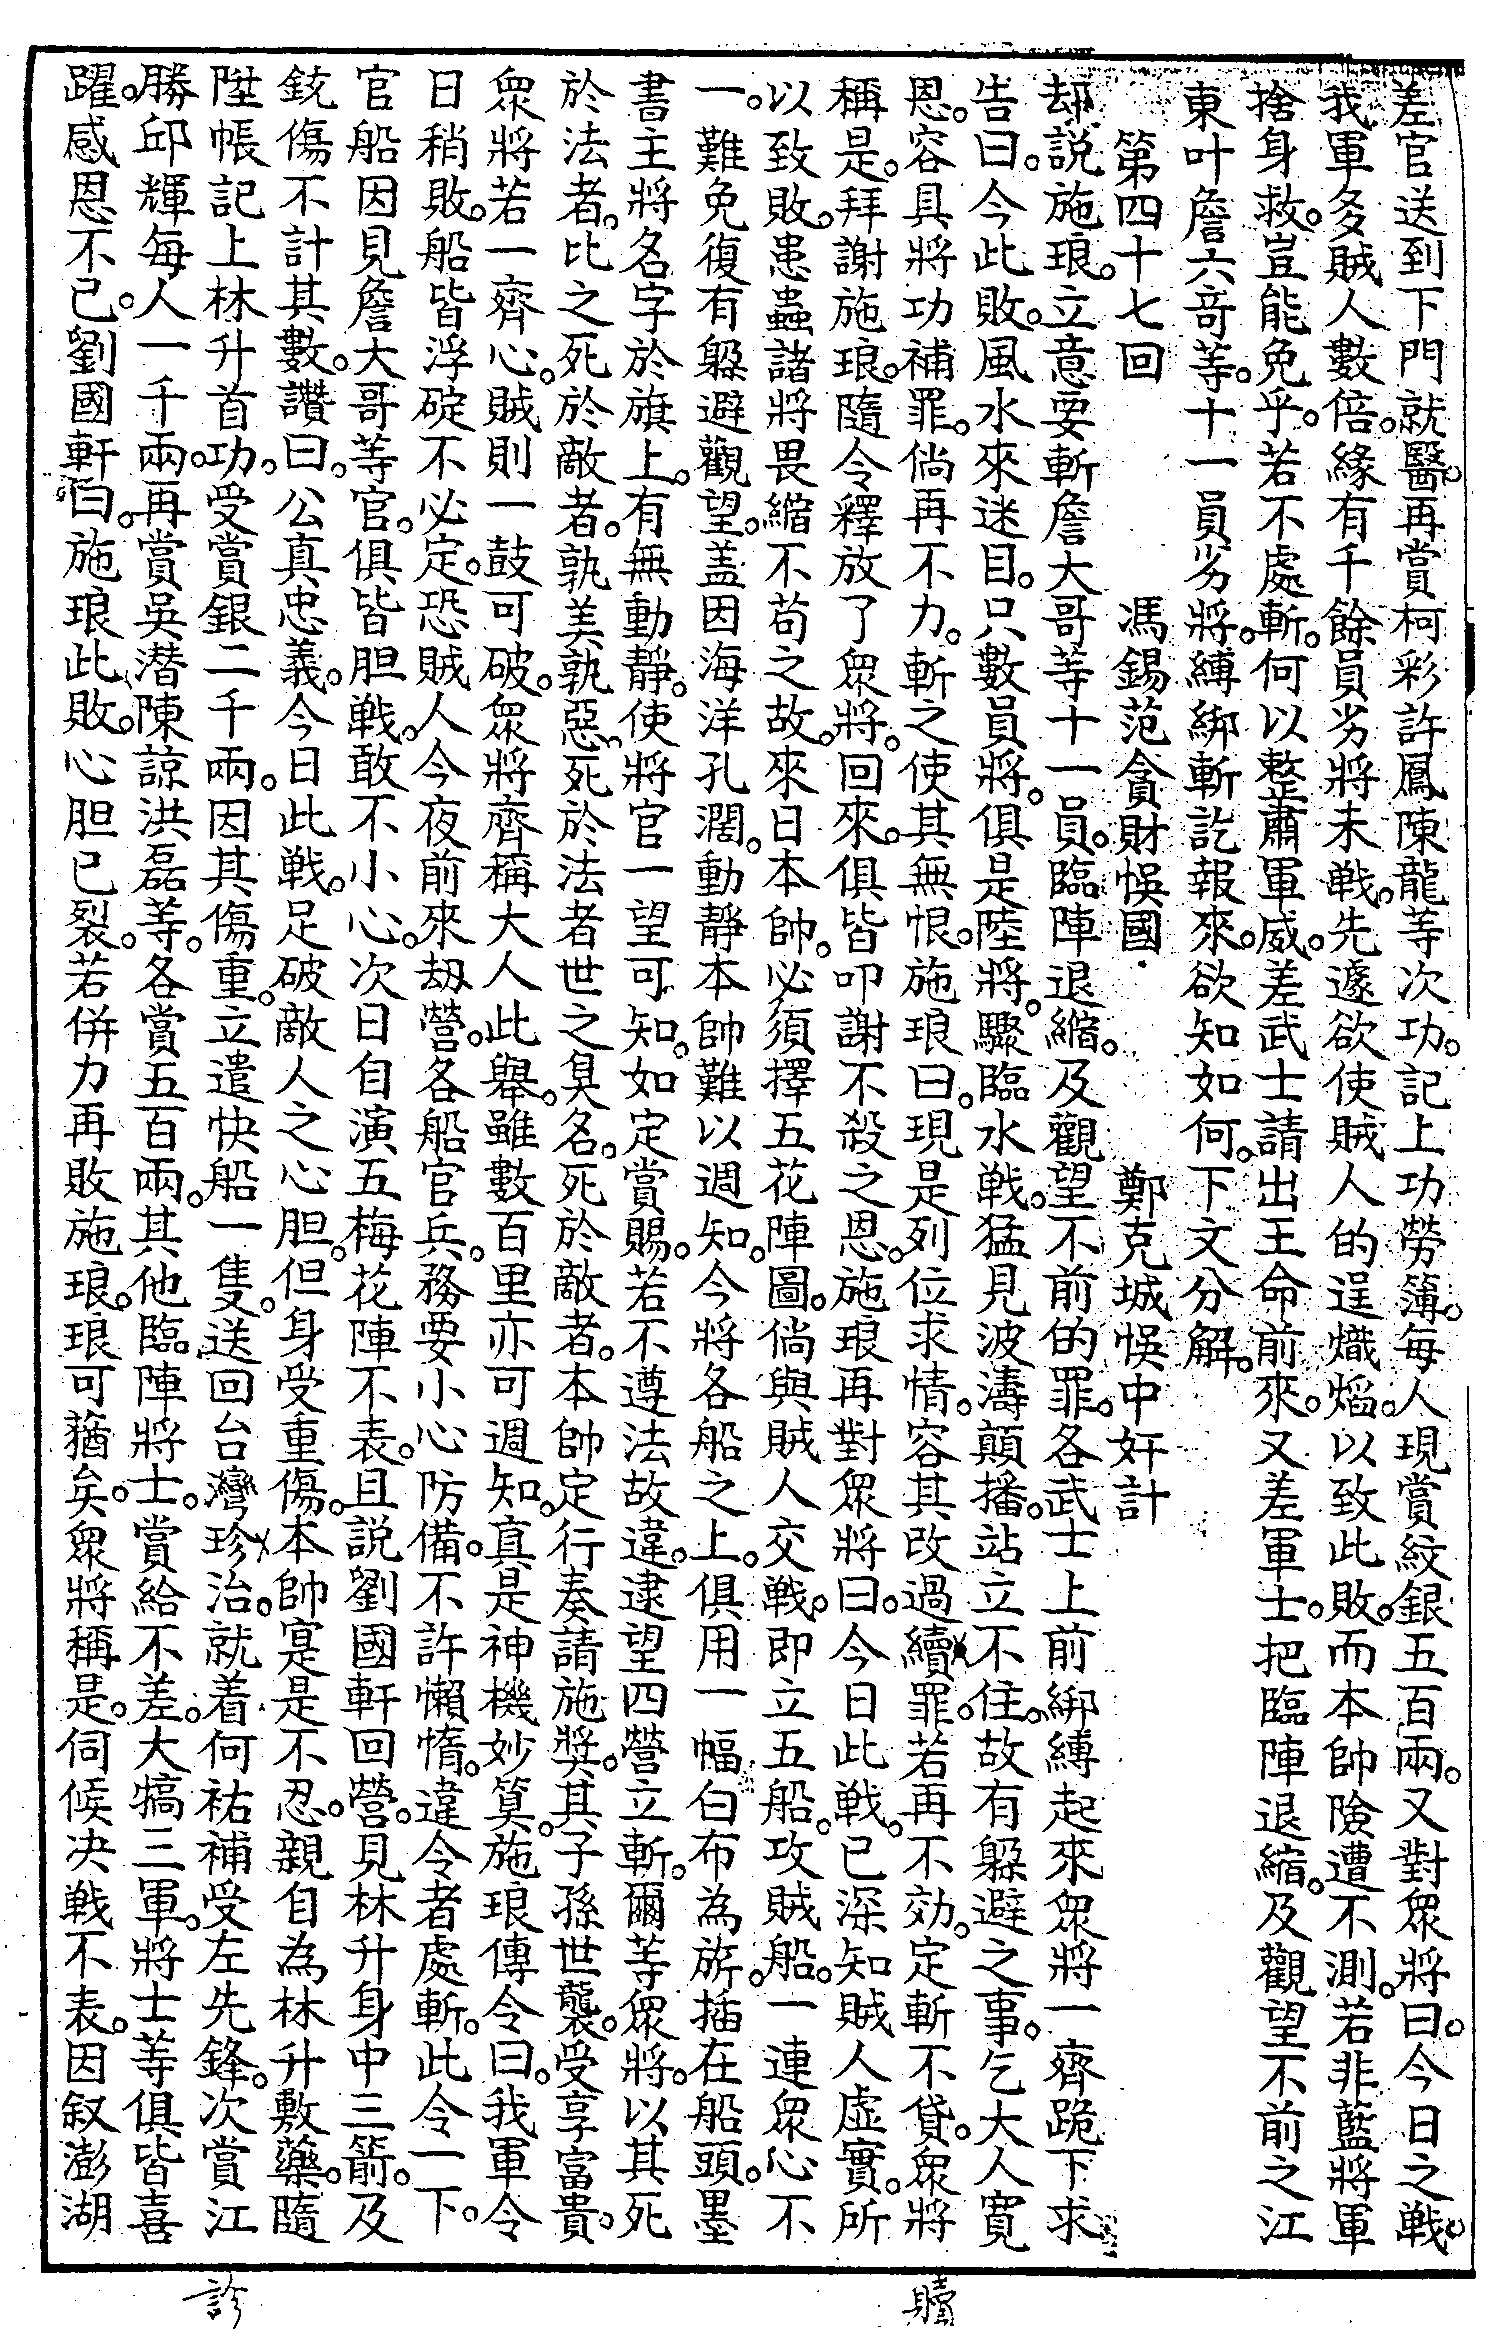 差官送到下門就醫。再賞柯彩許鳳陳龍等次功。記上功勞簿。每人現賞紋銀五百兩。又對眾將曰。今日之戰。
我軍多賊人數倍。緣有千餘員劣將未戰。先遽欲使賊人的逞熾焰。以致此敗。而本帥險遭不測。若非藍將軍
捨身救。豈能免乎。若不處斬。何以整肅軍威。差武士請出王命前來。又差軍士。把臨陣退縮。及觀望不前之江
東叶詹六哥等。十一員劣將。縛綁斬訖報來。欲知如何。下文分解。
第四十七回 馮錫范貪財悞國 鄭克城悞中奸計
却說施琅。立意要斬詹大哥等十一員。臨陣退縮。及觀望不前的罪。各武士上前綁縛起來眾將一齊跪下求
告曰。今此敗。風水來迷目。只數員將。俱是陸將。驟臨水戰。猛見波濤顛播。站立不住。故有躲避之事。乞大人寬
恩。容具將功補罪。倘再不力。斬之使其無恨。施琅曰。現是列位求情。容其改過續罪。若再不効。定斬不貸。眾將
稱是。拜謝施琅。隨令釋放了眾將。回來。俱皆叩謝不殺之恩。施琅再對眾將曰。今日此戰。已深知賊人虛實。所
以致敗。患蟲諸將畏縮不苟之故。來日本帥。必須擇五花陣圖。倘與賊人交戰。即立五船。攻賊船。一連眾心不
一。難免復有躲避觀望。盖因海洋孔濶。動靜本帥難以週知。今將各船之上。俱用一幅白布為旂。插在船頭。墨
書主將名字於旗上。有無動靜。使將官一望可知。如定賞賜。若不遵法故違。逮望四營立斬。爾等眾將。以其死
於法者。比之死於敵者。孰美孰惡。死於法者世之臭名。死於敵者。本帥定行奏請施獎。其子孫世襲。受享富貴。
眾將若一齊心。賊則一鼓可破。眾將齊稱大人此舉。雖數百里亦可週知。真是神機妙筭。施琅傳令曰。我軍今
日稍敗。船皆浮碇不必定。恐賊人今夜前來刼營。各船官兵。務要小心防備。不許懶惰。違令者處斬。此令一下。
官船因見詹大哥等官。俱皆胆戰。敢不小心。次日自演五梅花陣不表。且說劉國軒回營。見林升身中三箭。及
銃傷不計其數。讚曰。公真忠義。今日此戰。足破敵人之心胆。但身受重傷。本帥寔是不忍。親自為林升敷藥。隨
陞帳記上林升首功。受賞銀二千兩。因其傷重。立遣快船一隻。送回台灣珍治。就着何祐補受左先鋒。次賞江
勝邱輝每人一千兩。再賞吳潛陳諒洪磊等。各賞五百兩。其他臨陣將士。賞給不差。大犒三軍。將士等俱皆喜
躍。感恩不已。劉國軒曰。施琅此敗。心胆已裂。若併力再敗施琅。琅可獲矣。眾將稱是。伺候决戰不表。因叙澎湖
贖
診